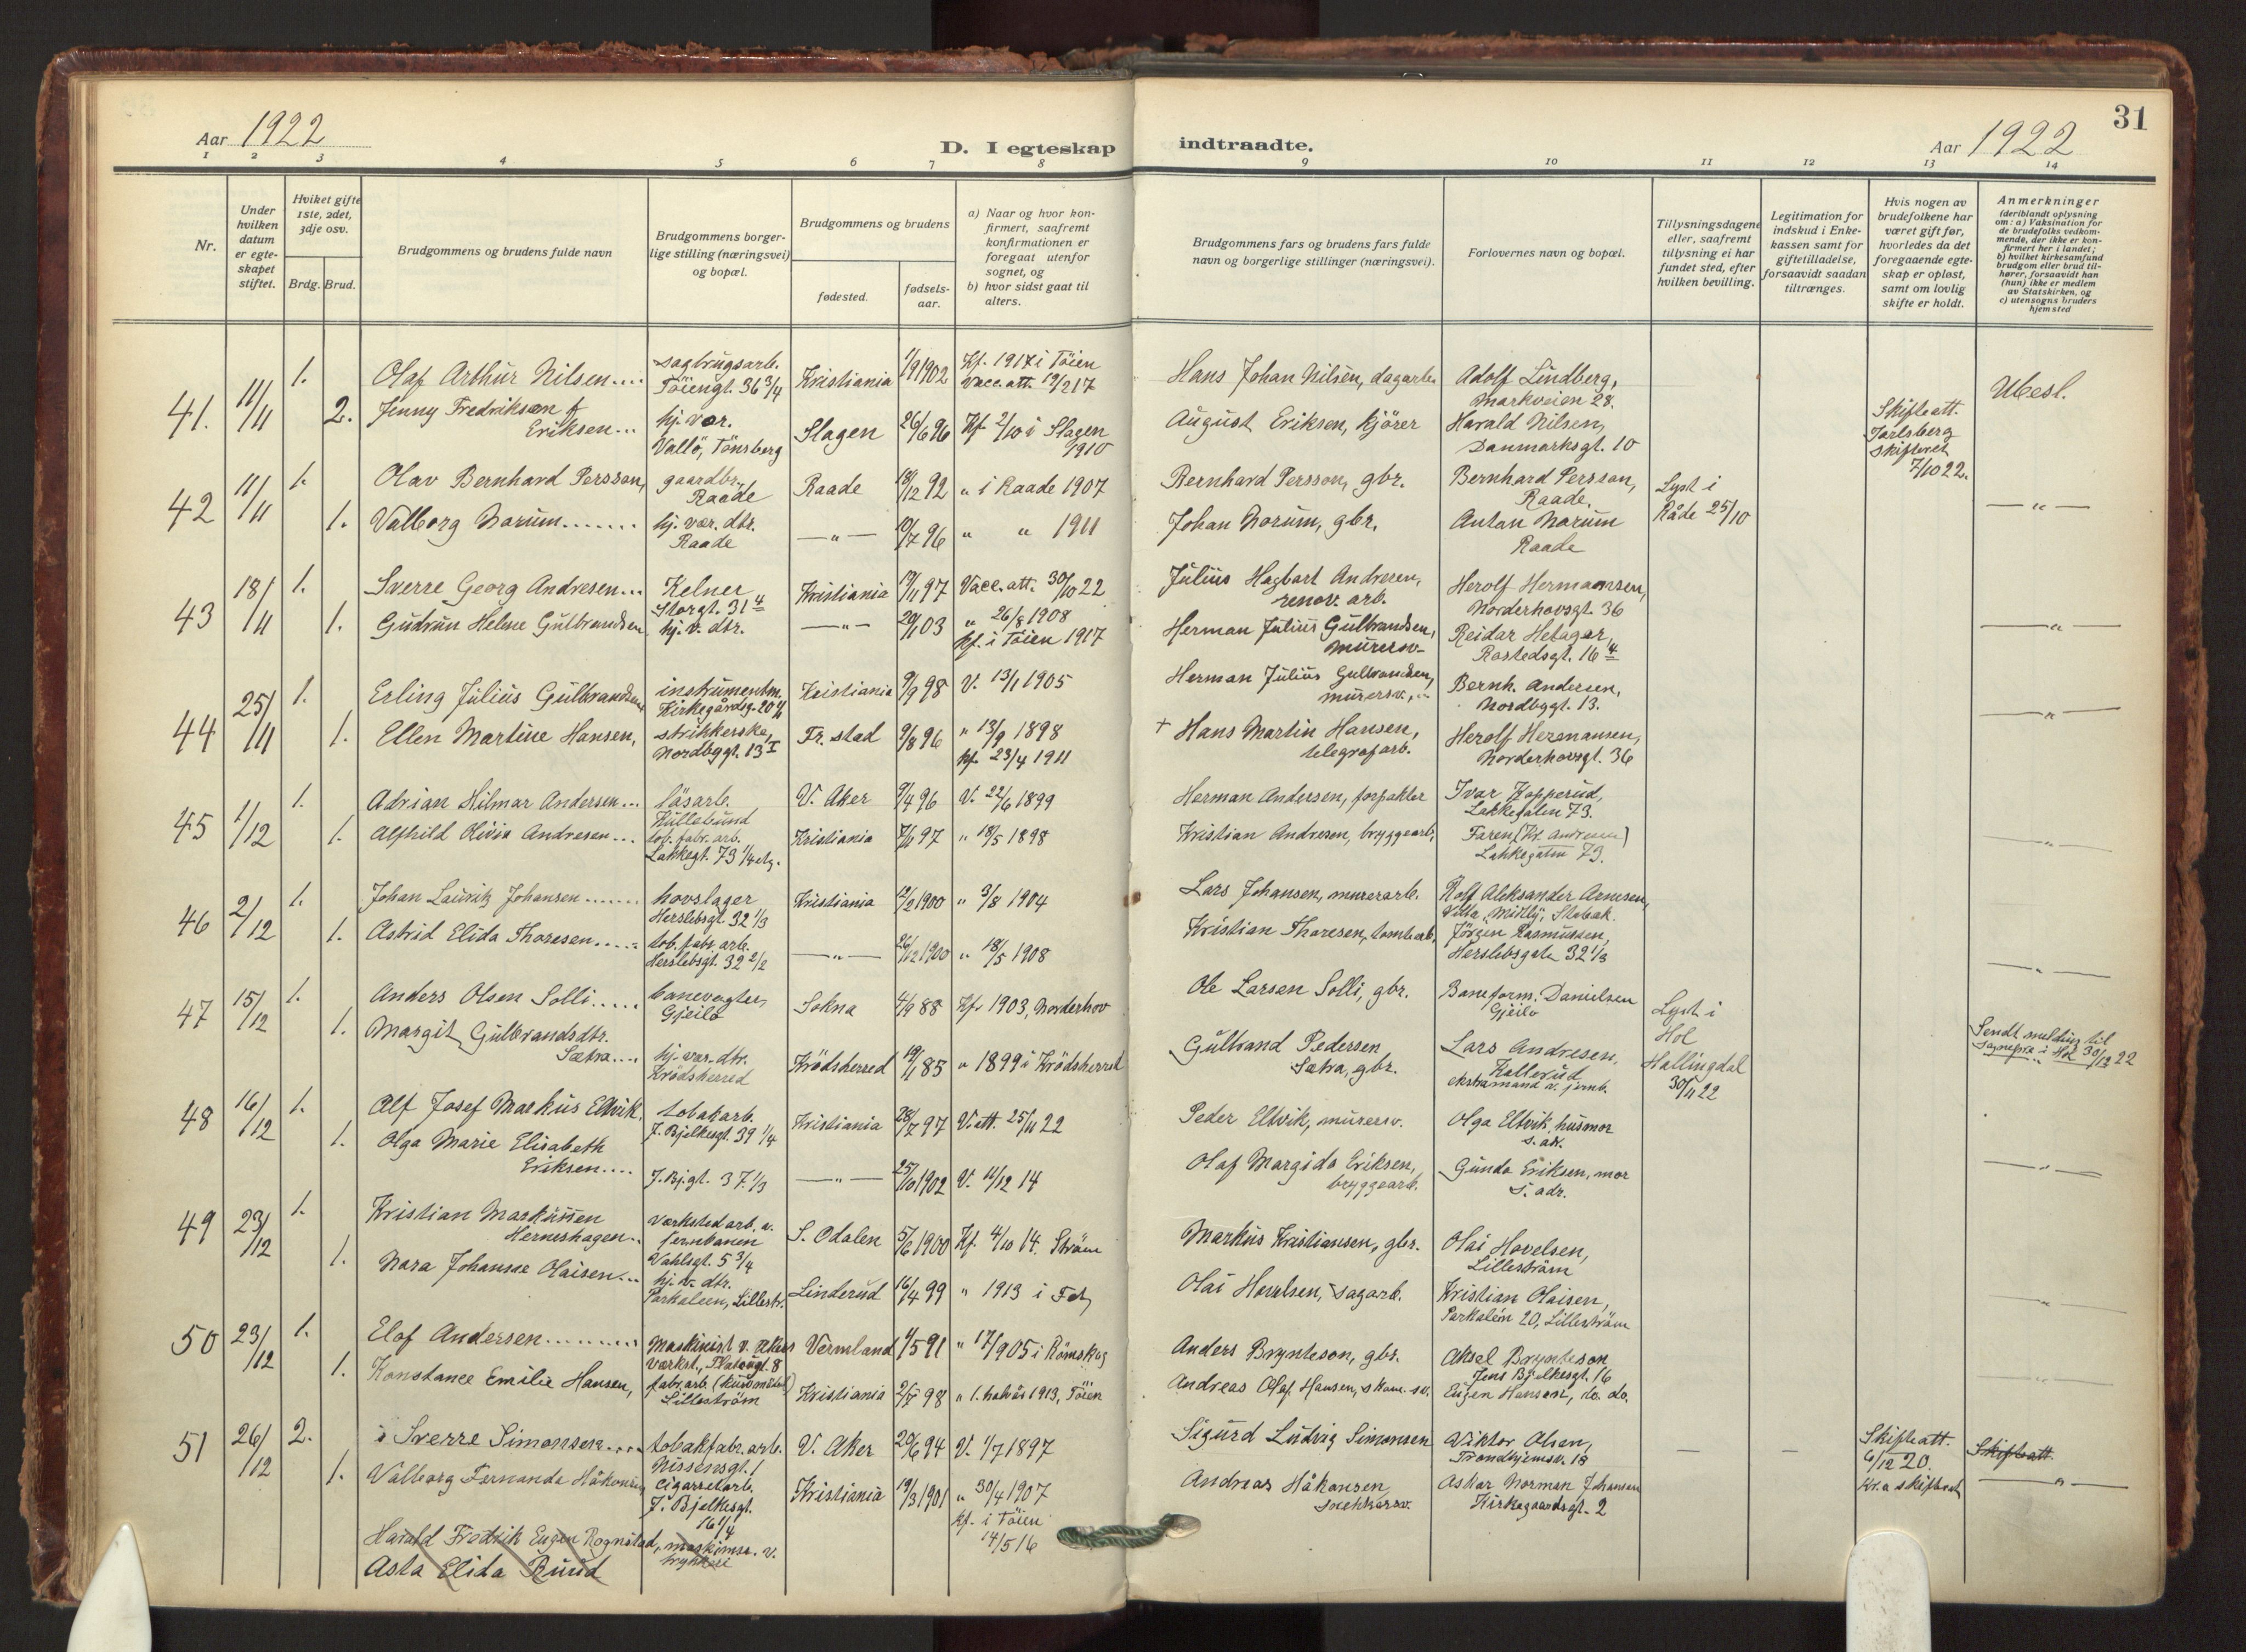 31
Aar 1922
D. I egteskap indtraadte.
Aar 1922
1 2 3 4 5 6 7 8 9 10 11 12 13 14
Nr.
Under hvilken datum er egteskapet stiftet.
Hviket gifte 1ste, 2det, 3dje osv.
Brdg. Brud.
Brudgommens og brudens fulde navn
Brudgommens borgerlige stilling (næringsvei) og bopæl.
Brudgommens og brudens
fødested.
fødselsaar.
a) Naar og hvor konfirmert, saafremt konfirmationen er foregaat utenfor sognet, og
b) hvor sidst gaat til alters.
Brudgommens fars og brudens fars fulde navn og borgerlige stillinger (næringsvei).
Forlovernes navn og bopæl.
Tillysningsdagene eller, saafremt tilysning ei har fundet sted, efter hvilken bevilling.
Legitimation for indskud i Enkekassen samt for giftetilladelse, forsaavidt saadan tiltrænges.
Hvis nogen av brudefolkene har været gift før, hvorledes da det foregaaende egteskap er opløst, samt om lovlig skifte er holdt.
Anmerkninger
(deriblandt oplysning om: a) Vaksination for de brudefolks vedkommende, der ikke er konfirmert her i landet; b) hvilket kirkesamfund brudgom eller brud tilhører, forsaavidt han (hun) ikke er medlem av Statskirken, og c) utensogns bruders hjemsted
41. 11/11 1. Olaf Arthur Nilsen.... sagbrugsarb. Töiengt. 36 3/4 Kristiania 1/9 1902 Kf. 1917 i Töien Vacc. att. 19/2 17 Hans Johan Nilsen, dagarb. Adolf Lindberg, Markveien 28. Ubesl.
2. Jenny Fredriksen f. Eriksen... hj. vær. Vallö, Tönsberg Slagen 26/6 96 Kf. 2/10 i Slagen 1910 August Eriksen, kjörer Harald Nilsen, Danmarksgt. 10 Skifteatt. Jarlsberg skifteret 7/10 22.
42 11/11 1. Olav Bernhard Persson, gaardbr. Raade Raade 18/12 92 " i Raade 1907 Bernhard Persson, gbr. Bernhard Persson, Raade. Lyst i Råde 25/10 — " —
1. Valborg Norum....... hj. vær. dtr. Raade — " — 10/7 96 " " 1911 Johan Norum, gbr. Anton Norum Raade
43 18/11 1. Sverre Georg Andresen... Kelner Storgt. 31 4 Kristiania 19/11 97 Vacc. att. 30/10 22 Julius Hagbart Andresen, renov. arb. Herolf Hermansen, Norderhovsgt. 36
1. Gudrun Helene Gulbrandsen hj. v. dtr. — " — 20/1 03 " 26/8 1908 Kf. i Töien 1917 Herman Julius Gulbrandsen, murersv. Reidar Hetager, Rostedsgt. 16 4 — " —
44 25/11 1. Erling Julius Gulbrandsen instrumentm. Kirkegårdsg. 20 Kristiania 9/9 98 V. 13/1 1905 Herman Julius Gulbrandsen, murersv. Bernh. Andersen, Nordbygt. 13.
1. Ellen Martine Hansen, strikkerske, Nordbygt. 13 I Fr. stad 9/8 96 " 13/9 1898 kf. 23/4 1911 + Hans Martin Hansen, telegrafarb. Herolf Hermansen, Norderhovsgt. 36 — " —
45 1/12 1. Adrian Hilmar Andersen... läsarb. V. Aker 9/4 96 V. 22/6 1899 Herman Andersen, forpakter Ivar Kopperud, Lakkegaten 73.
1. Alfhild Olivia Andresen... tob. fabr. arb. Lakkegt. 73 1/4 etg. Kristiania 7/11 97 " 18/5 1898 Kristian Andresen, bryggearb. Faren (Kr. Andresen) Lakkegaten 73. — " —
46 2/12 1. Johan Lauritz Johansen....... hovslager Herslebsgt. 32 1/3 Kristiania 19/2 1900 " 3/8 1904 Lars Johansen, murerarb. Rolf Aleksander Arnesen,
1. Astrid Elida Thoresen..... tob. fabr. arb. Herslebsgt. 32 2/2 — " — 26/12 1900 " 18/5 1908 Kristian Thoresen, tomtearb. Jörgen Rasmussen, Herslebsgate 32 1/3 — " —
47 15/12 1. Anders Olsen Solli..... banevogter, Gjeilo Sokna 4/9 88 Kf. 1903, Norderhov Ole Larsen Solli, gbr. Baneform. Danielsen Gjeilo Lyst i Hol Hallingdal 30/11 22
1. Margit Gulbrandsdtr. Sætra.... hj. vær. dtr. Krödsherred Krödsherred 19/1 85 " 1899 i Krödsherred Gulbrand Pedersen Sætra, gbr. Lars Andresen, Kallerud ekstramand v. jernb. Sendt melding til sognepre. i Hol 30/12 22
48 16/12 1. Alf Josef Markus Eltvik. tobakarb. J. Bjelkesgt. 39 1/4 Kristiania 28/7 97 V. att. 25/11 22 Peder Eltvik, murersv. Olga Eltvik, husmor s. adr.
1. Olga Marie Elisabeth Eriksen.... J. Bj. gt. 37 1/3 — " — 25/10 1902 V. 11/12 14 Olaf Margido Eriksen, bryggearb. Gunda Eriksen, mor s. adr. — " —
49 23/12 1. Kristian Markussen Herneshagen.. værksted arb. v. jernbanen Vahlsgt. 5 3/4 S. Odalen 5/6 1900 Kf. 4/10 14. Ström Markus Kristiansen, gbr. Olai Hovelsen, Lilleström
1. Nora Johanne Olaisen... hj. v. dtr. Parkaleen, Lillestr. Linderud 16/4 99 " 1913 i Fet, Olai Hovelsen, sagarb. Kristian Olaisen, Parkaleén 20, Lilleström — " —
50 23/12 1. Elof Andersen......... Maskinist v. Akers værkst., Platougt. 8 Vermland 1/5 91 " 17/9 05 i Römskog Anders Brynteson, gbr. Aksel Brynteson Jens Bjelkesgt. 16
1. Konstance Emilie Hansen, fabr. arb. Lilleström Kristiania 2/7 98 " 1. halvår 1913, Töien Andreas Olaf Hansen, skom. sv. Eugen Hansen, do. do. — " —
51 26/12 2. Sverre Simonsen.... tobakfabr. arb. Nissensgt. 1 V. Aker 20/6 94 V. 1/7 1897 Sigurd Ludvig Simonsen Viktor Olsen, Trondhjemsv. 18 — — Skifteatt. 6/12 20. Kr.a skifteret Skifteatt
1. Valborg Fernanda Håkonsen cigarretarb. J. Bjelkesgt. 16 1/4 Kristiania 19/3 1901 " 30/4 1907 Kf. i Töien 14/5 16 Andreas Håkonsen, snekkersv. Askar Norman Johansen Kirkegaardsgt. 2 — " —
Harald Fredrik Eugen Rognstad, maskinms. v. trykkeri
Asta Elida Ruud